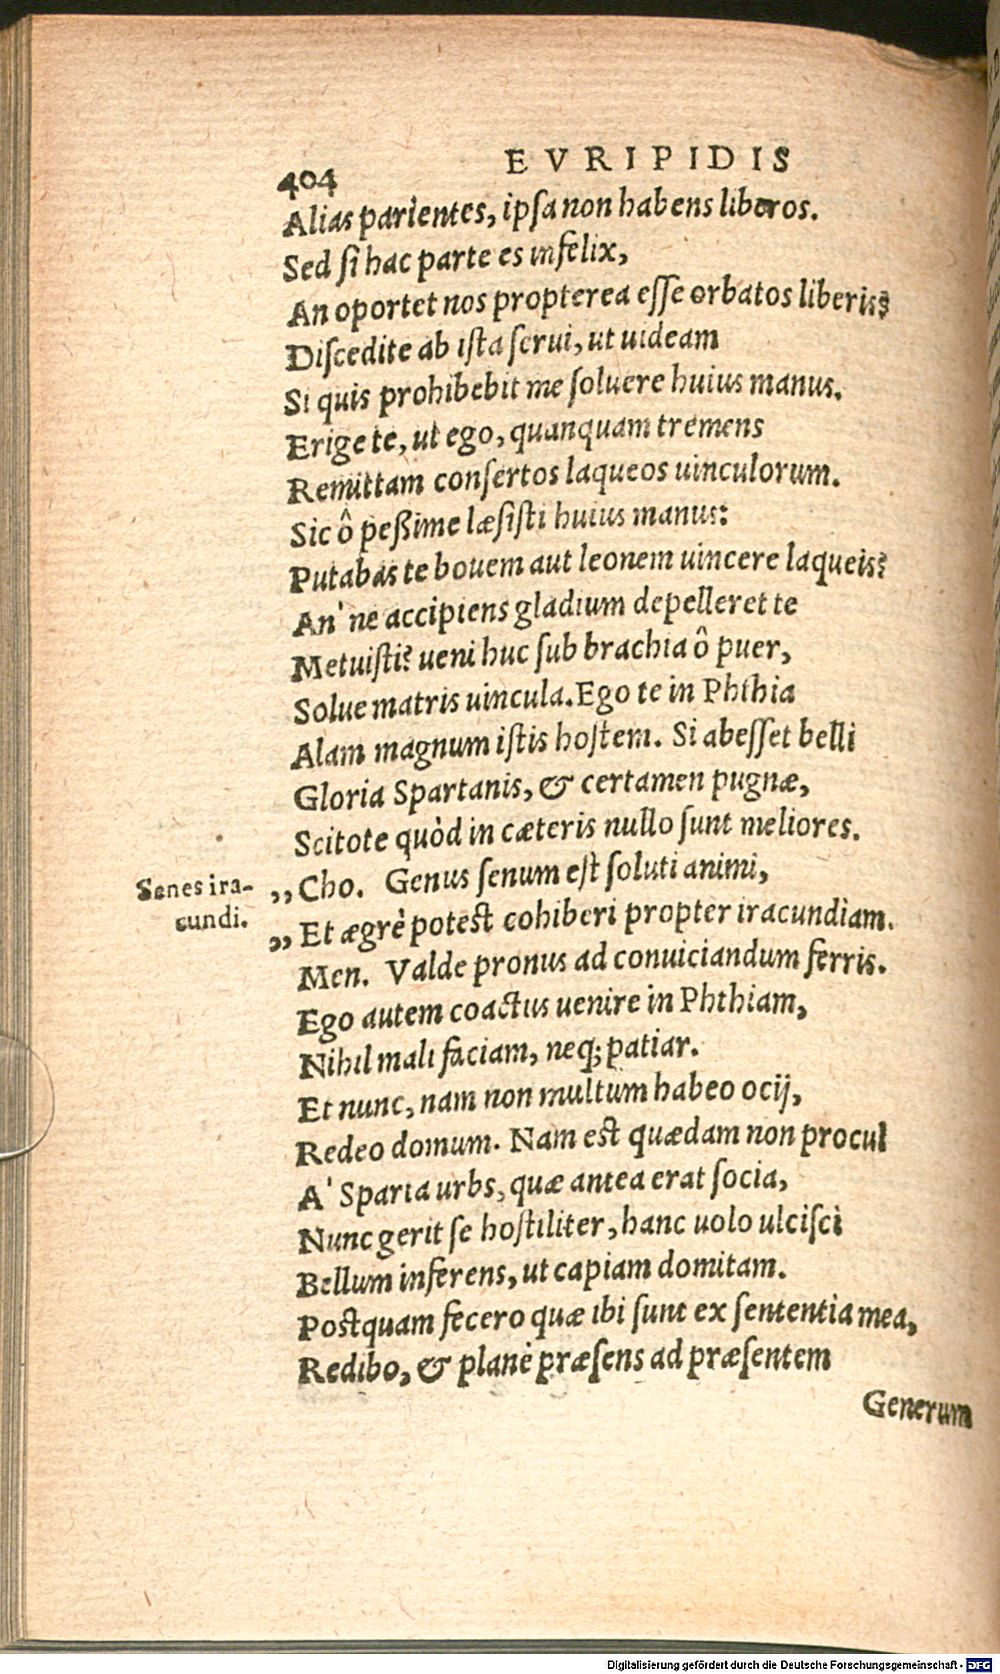 404
EVRIPIDIS
Alias parientes, ipſa non habens liberos.
Sed ſi hac parte es infelix,
An oportet nos propterea eſſe orbatos liberis?
Diſcedite ab iſta ſerui, ut uideam
Si quis prohibebit me ſoluere huius manus.
Erige te, ut ego, quanquam tremens
Remittam conſertos laqueos uinculorum.
Sic ô peßime læſiſti huius manus:
Putabas te bouem aut leonem uincere laqueis?
An' ne accipiens gladium depelleret te
Metuiſti? ueni huc ſub brachia ô puer,
Solue matris uincula. Ego te in Phthia
Alam magnum iſtis hoſtem. Si abeſſet belli
Gloria Spartanis, & certamen pugnæ,
Scitote quòd in cæteris nullo ſunt meliores.
Senes ira-
cundi.
„Cho. Genus ſenum eſt ſoluti animi,
„Et ægrè potest cohiberi propter iracundiam.
Men. Valde pronus ad conuiciandum ferris.
Ego autem coactus uenire in Phthiam,
Nihil mali faciam, neq; patiar.
Et nunc, nam non multum habeo ocij,
Redeo domum. Nam est quædam non procul
A' Sparta urbs, quæ antea erat ſocia,
Nunc gerit ſe hoſtiliter, hanc uolo ulciſci
Bellum inferens, ut capiam domitam.
Postquam fecero quæ ibi ſunt ex ſententia mea,
Redibo, & planè præſens ad præſentem
Generum
Digitalisierung gefördert durch die Deutsche Forschungsgemeinschaft - DFG